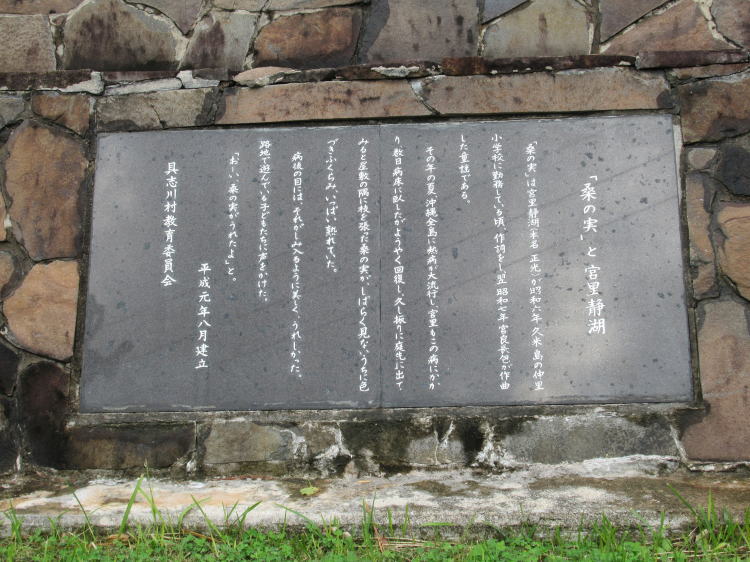 「桑の実」と宮里静湖
「桑の実」は宮里静湖(本名 正光)が昭和六年、久米島の仲里
小学校に勤務している頃、作詞をし、翌昭和七年宮良長包が作曲
した童謡である。
その年の夏、沖縄全島に熱病が大流行し、宮里もこの病にかか
り、数日病床に臥したがようやく回復し、久し振りに庭先に出て
みると屋敷の隅に枝を張った桑の実が、しばらく見ないうちに色
づきふくらみ、いっぱい熟れていた。
病後の目には、それがしみ入るように美しく、うれしかった。
路地で遊んでいる子どもたちに声をかけた。
「おーい、桑の実がうれたよ」と。
平成元年八月建立
具志川村教育委員会